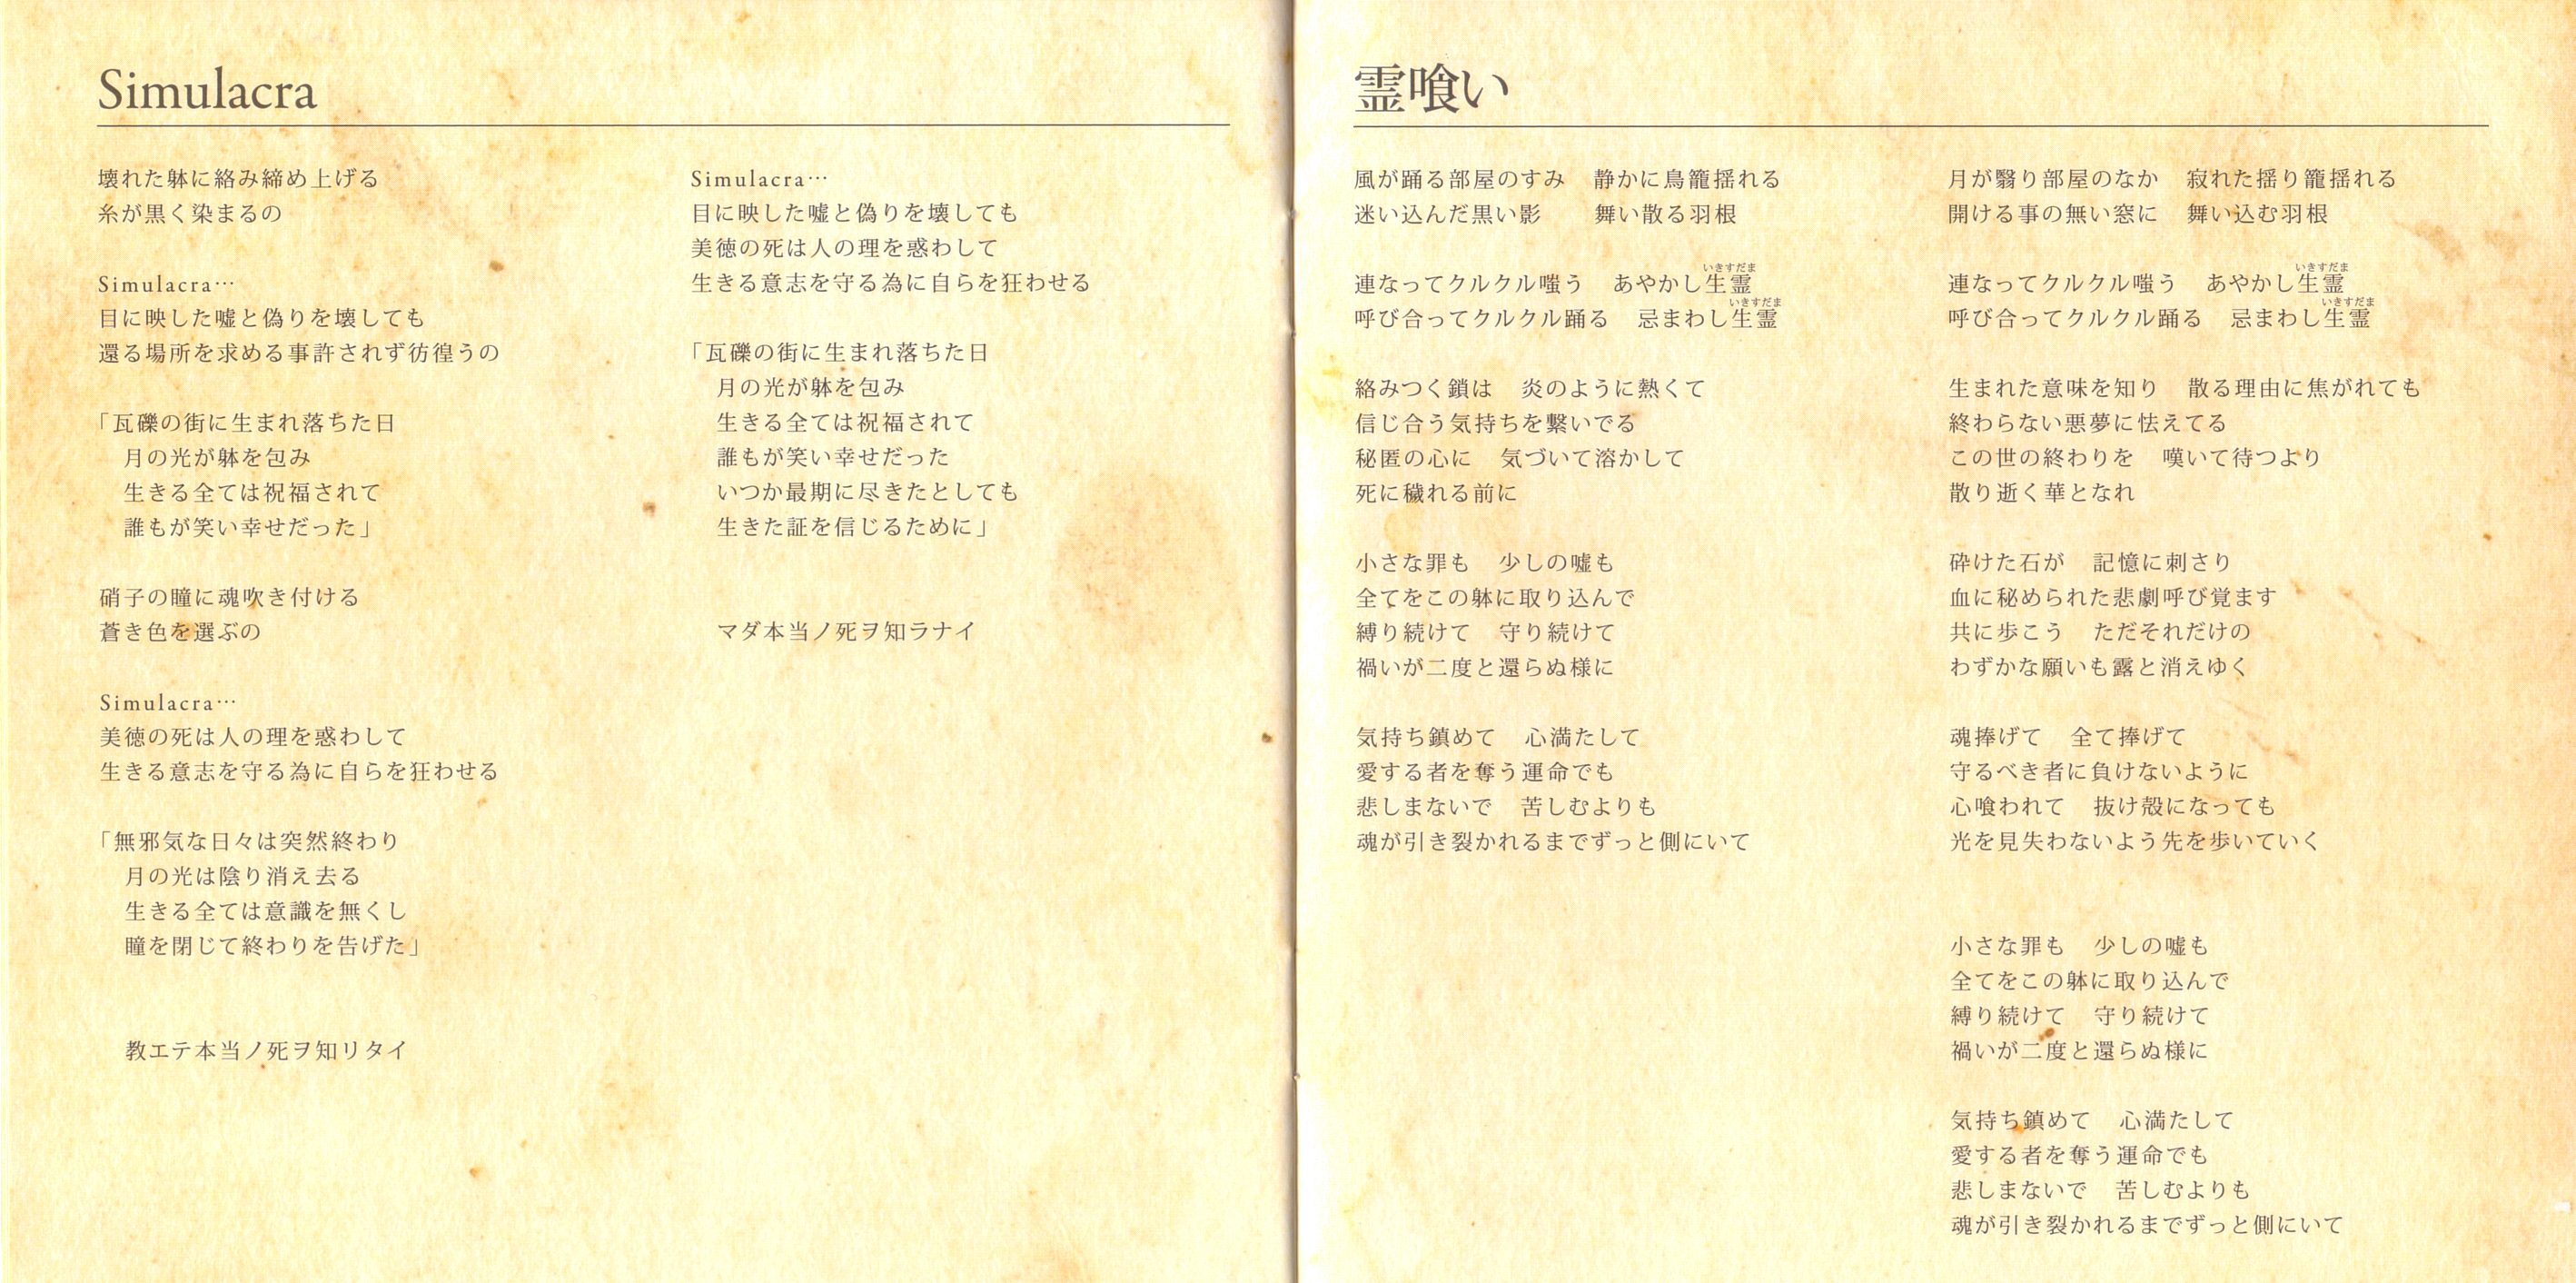 Simulacra
壊れた躰に絡み締め上げる
糸が黒く染まるの
Simulacra…
目に映した嘘と偽りを壊しても
還る場所を求める事許されず彷徨うの
「瓦礫の街に生まれ落ちた日
月の光が躰を包み
生きる全ては祝福されて
誰もが笑い幸せだった」
硝子の瞳に魂吹き付ける
蒼き色を選ぶの
Simulacra…
美徳の死は人の理を惑わして
生きる意志を守る為に自らを狂わせる
「無邪気な日々は突然終わり
月の光は陰り消え去る
生きる全ては意識を無くし
瞳を閉じて終わりを告げた」
教エテ本当ノ死ヲ知リタイ
Simulacra…
目に映した嘘と偽りを壊しても
美徳の死は人の理を惑わして
生きる意志を守る為に自らを狂わせる
「瓦礫の街に生まれ落ちた日
月の光が躰を包み
生きる全ては祝福されて
誰もが笑い幸せだった
いつか最期に尽きたとしても
生きた証を信じるために」
マダ本当ノ死ヲ知ラナイ
霊喰い
風が踊る部屋のすみ　静かに鳥籠揺れる
迷い込んだ黒い影　舞い散る羽根
いきすだま
連なってクルクル嗤う　あやかし生霊
いきすだま
呼び合ってクルクル踊る　忌まわし生霊
絡みつく鎖は　炎のように熱くて
信じ合う気持ちを繋いでる
秘匿の心に　気づいて溶かして
死に穢れる前に
小さな罪も　少しの嘘も
全てをこの躰に取り込んで
縛り続けて　守り続けて
禍いが二度と還らぬ様に
気持ち鎮めて　心満たして
愛する者を奪う運命でも
悲しまないで　苦しむよりも
魂が引き裂かれるまでずっと側にいて
月が翳り部屋のなか　寂れた揺り籠揺れる
開ける事の無い窓に　舞い込む羽根
いきすだま
連なってクルクル嗤う　あやかし生霊
いきすだま
呼び合ってクルクル踊る　忌まわし生霊
生まれた意味を知り　散る理由に焦がれても
終わらない悪夢に怯えてる
この世の終わりを　嘆いて待つより
散り逝く華となれ
砕けた石が　記憶に刺さり
血に秘められた悲劇呼び覚ます
共に歩こう　ただそれだけの
わずかな願いも露と消えゆく
魂捧げて　全て捧げて
守るべき者に負けないように
心喰われて　抜け殻になっても
光を見失わないよう先を歩いていく
小さな罪も　少しの嘘も
全てをこの躰に取り込んで
縛り続けて　守り続けて
禍いが二度と還らぬ様に
気持ち鎮めて　心満たして
愛する者を奪う運命でも
悲しまないで　苦しむよりも
魂が引き裂かれるまでずっと側にいて